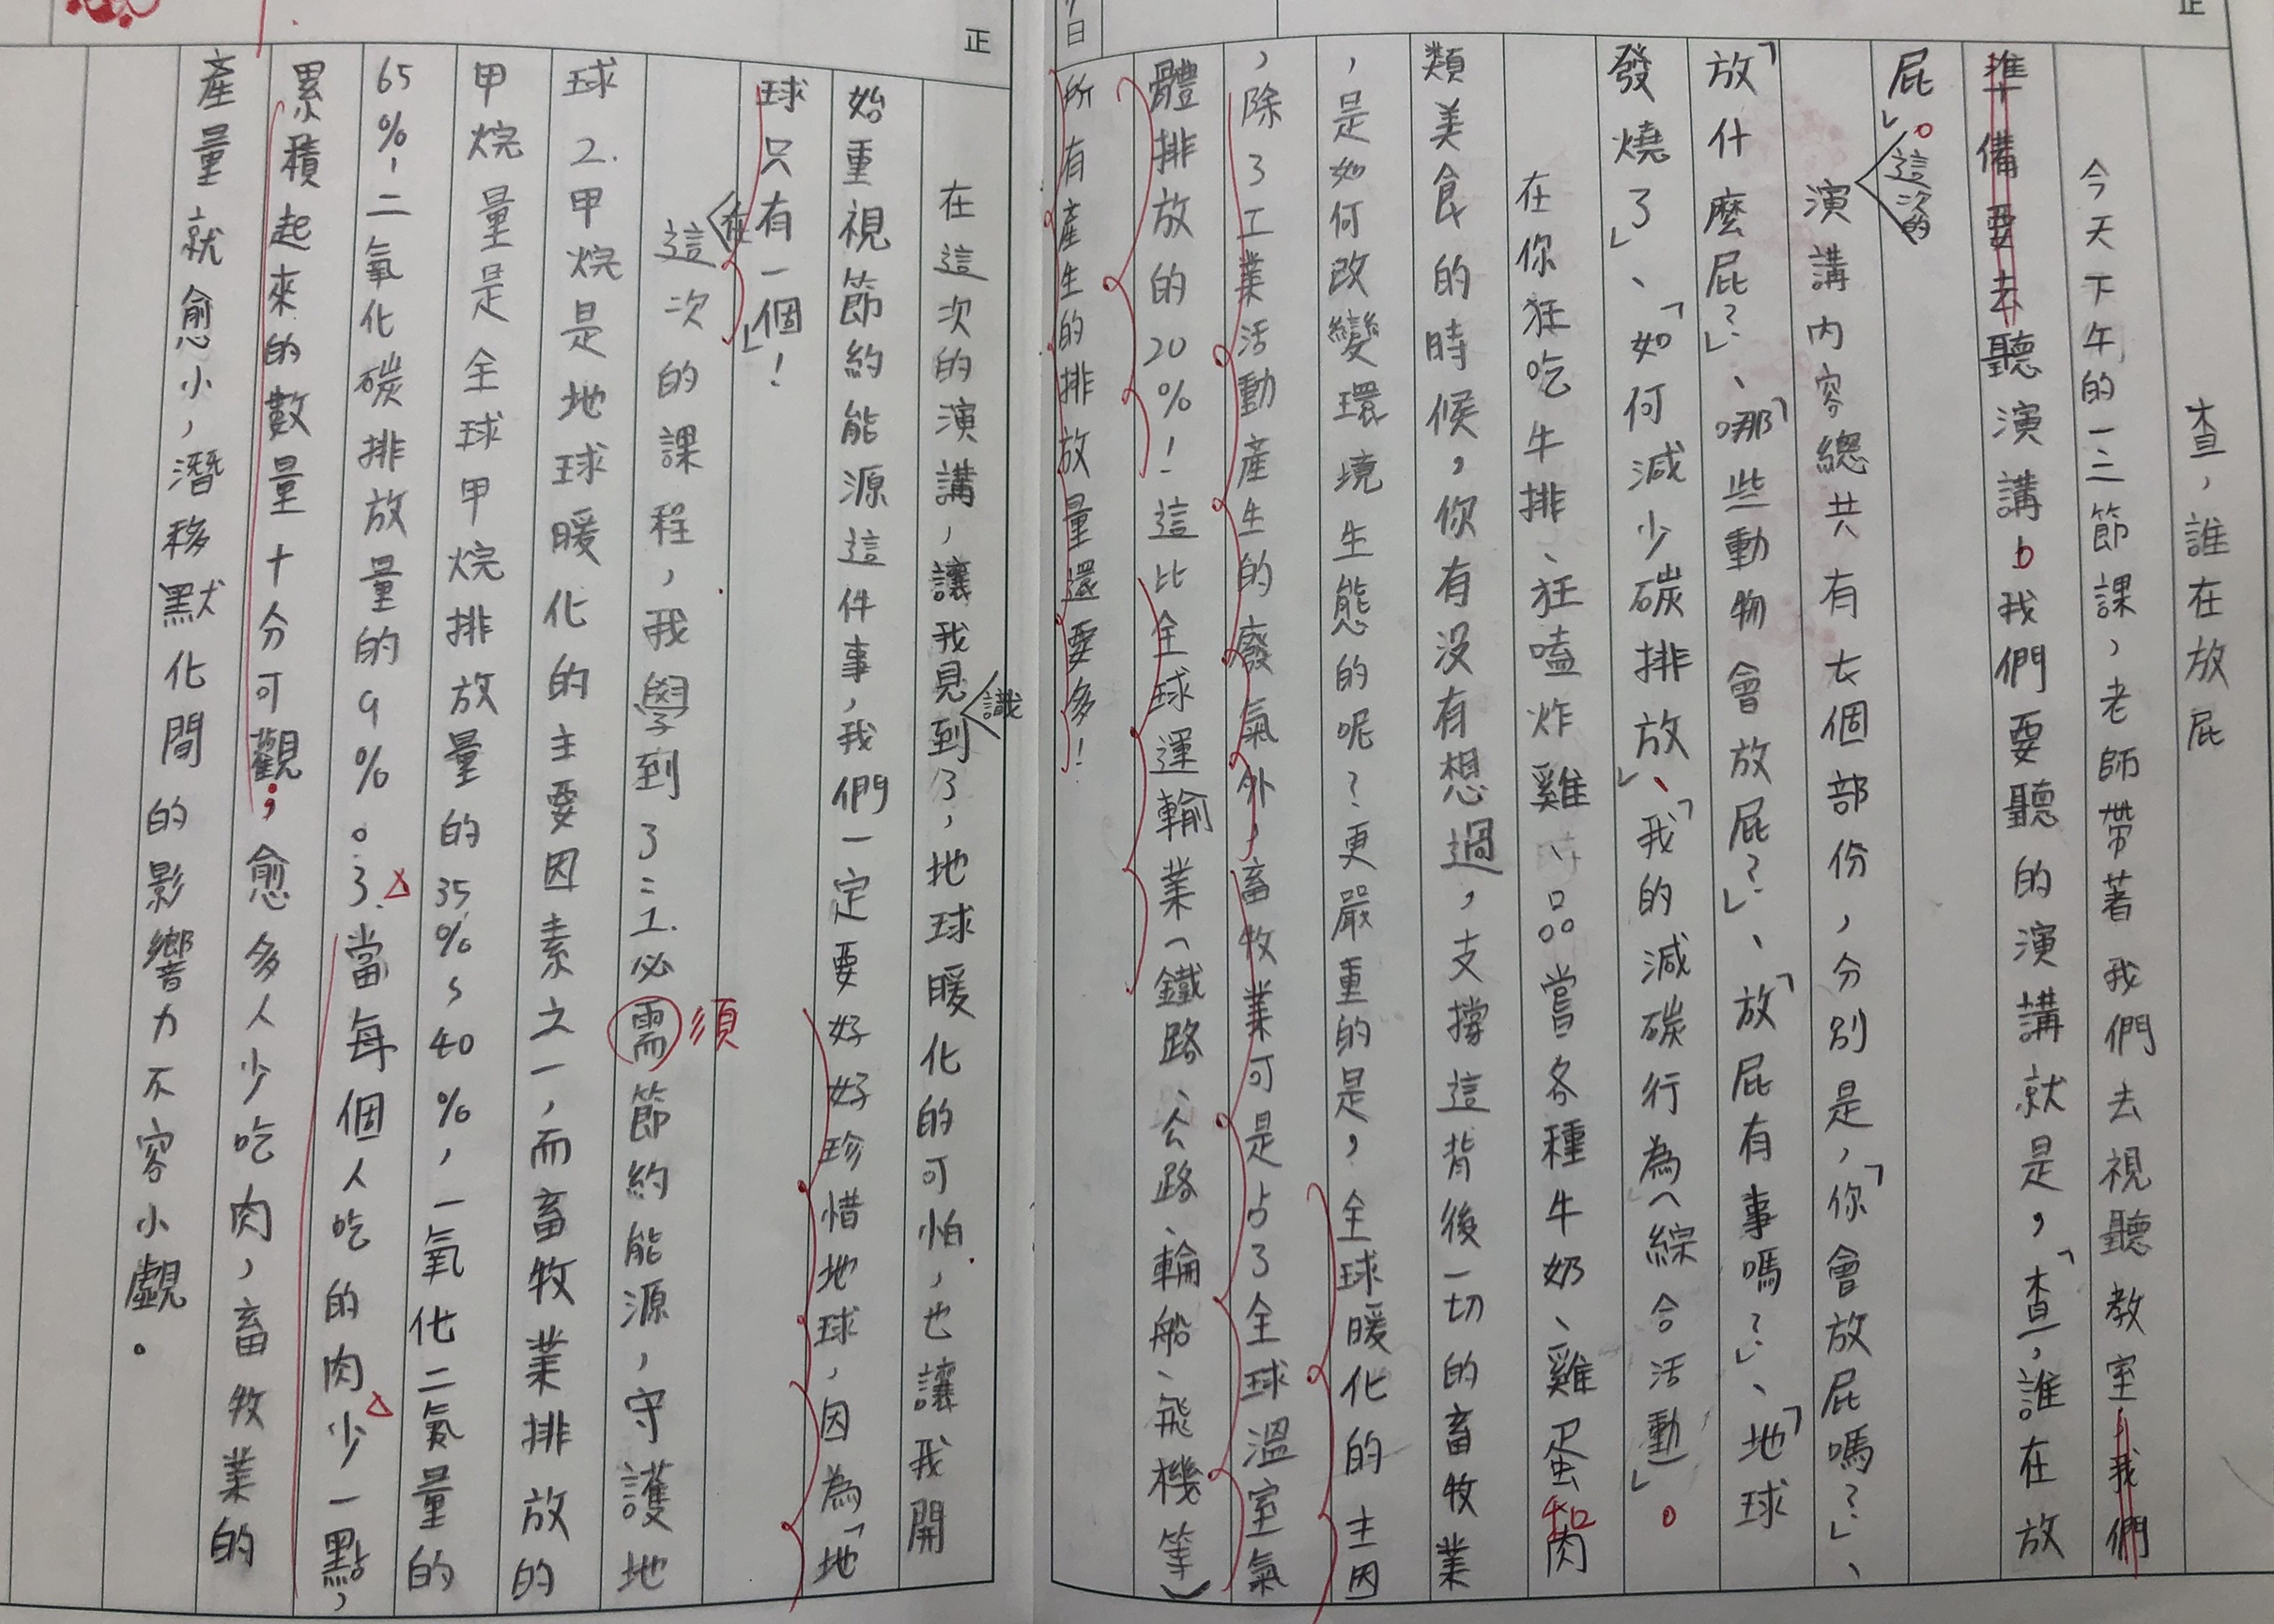 正
日
查，誰在放屁
今天下午的一、二節課，老師帶著我們去視聽教室，我們
準備要去聽演講。我們要聽的演講就是，「查，誰在放
屁」。這次的
演講內容總共有七個部份，分別是，「你會放屁嗎？」、
「放什麼屁？」、「哪些動物會放屁？」、「放屁有事嗎？」、「地球
發燒了」、「如何減少碳排放」、「我的減碳行為（綜合活動）」。
在你狂吃牛排、狂嗑炸雞、品嘗各種牛奶、雞蛋和肉
類美食的時候，你有沒有想過，支撐這背後一切的畜牧業
，是如何改變環境生態的呢？更嚴重的是，全球暖化的主因
，除了工業活動產生的廢氣外，畜牧業可是占了全球溫室氣
體排放的20%！這比全球運輸業（鐵路、公路、輪船、飛機等）
所有產生的排放量還要多！
正
在這次的演講，讓我見識到了，地球暖化的可怕，也讓我開
始重視節約能源這件事，我們一定要好好珍惜地球，因為「地
球只有一個」！
在這次的課程，我學到了：1.必需須節約能源，守護地
球2.甲烷是地球暖化的主要因素之一，而畜牧業排放的
甲烷量是全球甲烷排放量的35%~40%，一氧化二氮量的
65%，二氧化碳排放量的9%。3.當每個人吃的肉少一點，
累積起來的數量十分可觀；愈多人少吃肉，畜牧業的
產量就愈小，潛移默化間的影響力不容小覷。